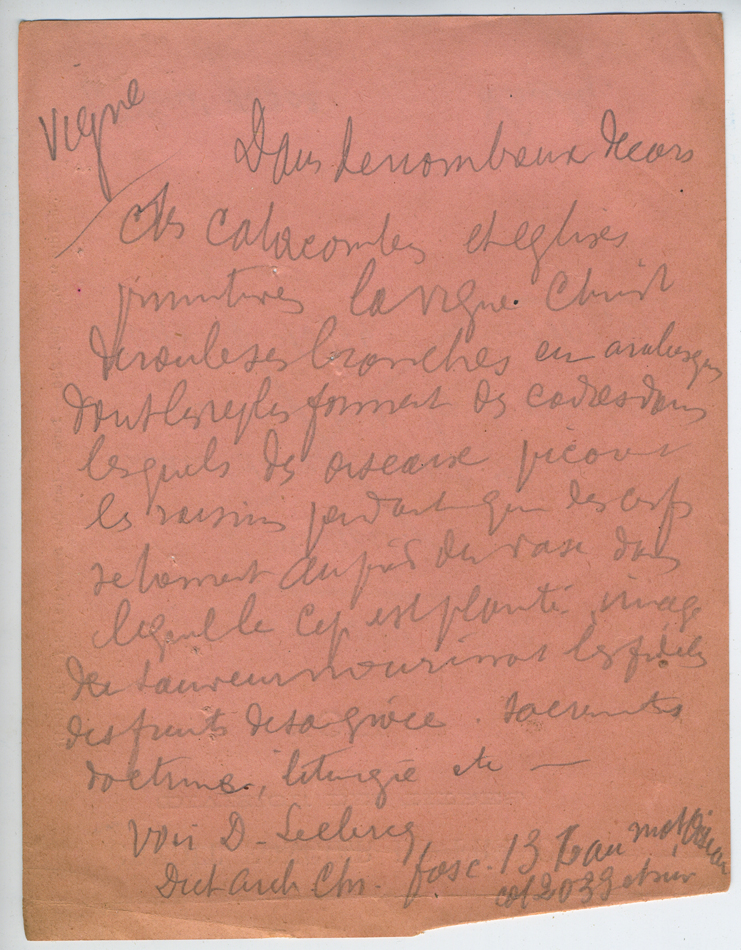 Vigne
Dans de nombreux decors
des catacombes et eglises
primitives la vigne Christ
deroule ses branches en arabesques
dont les replis forment des cadres dans
lesquels des oiseaux picorent
les raisins pendant que des cerfs
se tiennent au pied du vase dans
lequel le cep est planté, image
du Sauveur nourrissant les fidèles
des fruits de sa grâce. Sacrements
doctrine, liturgie etc —
Voir D. Leclercq
Dict Arch. Chr. fasc. 13 mot Oiseau
col 2039 et suiv